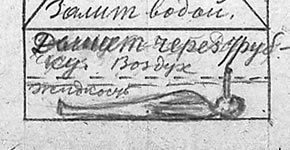 Залит водой.
Дышет через труб-
ку. Воздух
Жидкость